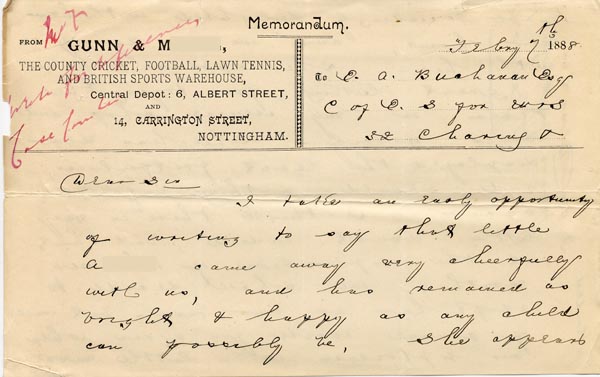 Memorandum.
FROM GUNN & M
THE COUNTY CRICKET, FOOTBALL, LAWN TENNIS,
AND BRITISH SPORTS WAREHOUSE,
Central Depot: 6, ALBERT STREET,
AND
14, CARRINGTON STREET,
NOTTINGHAM.
Febry 7th 1888
To E. A. Buchanan Esq
C of E. S for W & S
32 Charing +
Dear Sir
I take an early opportunity
of writing to say that little
A came away very cheerfully
with us, and has remained as
bright & happy as any child
can possibly be. She appears